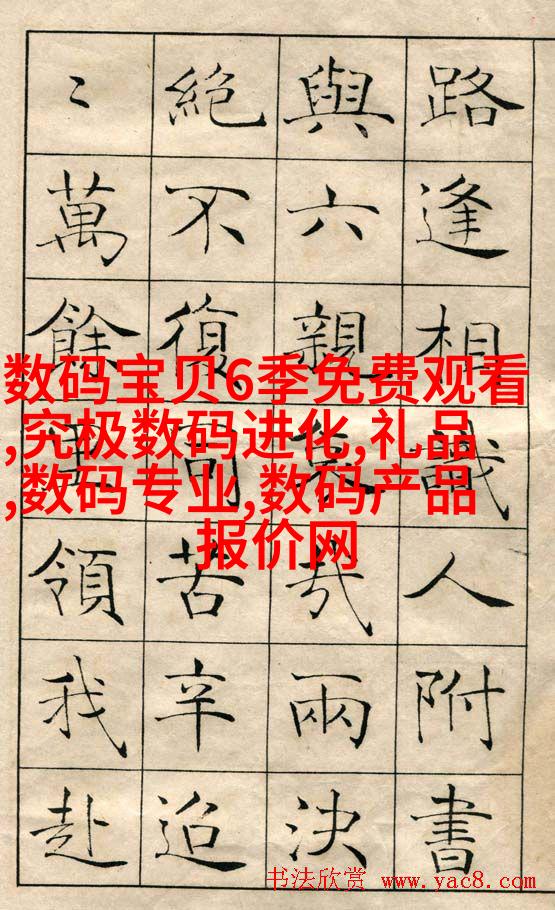 路逢相識人附書
與六親哉兩決
絶不復同苦辛迢
〻萬餘領我赴
数码宝贝6季免费观看
,究极数码进化,礼品
,数码专业,数码产品
报价网
书法欣赏 www.yac8.com